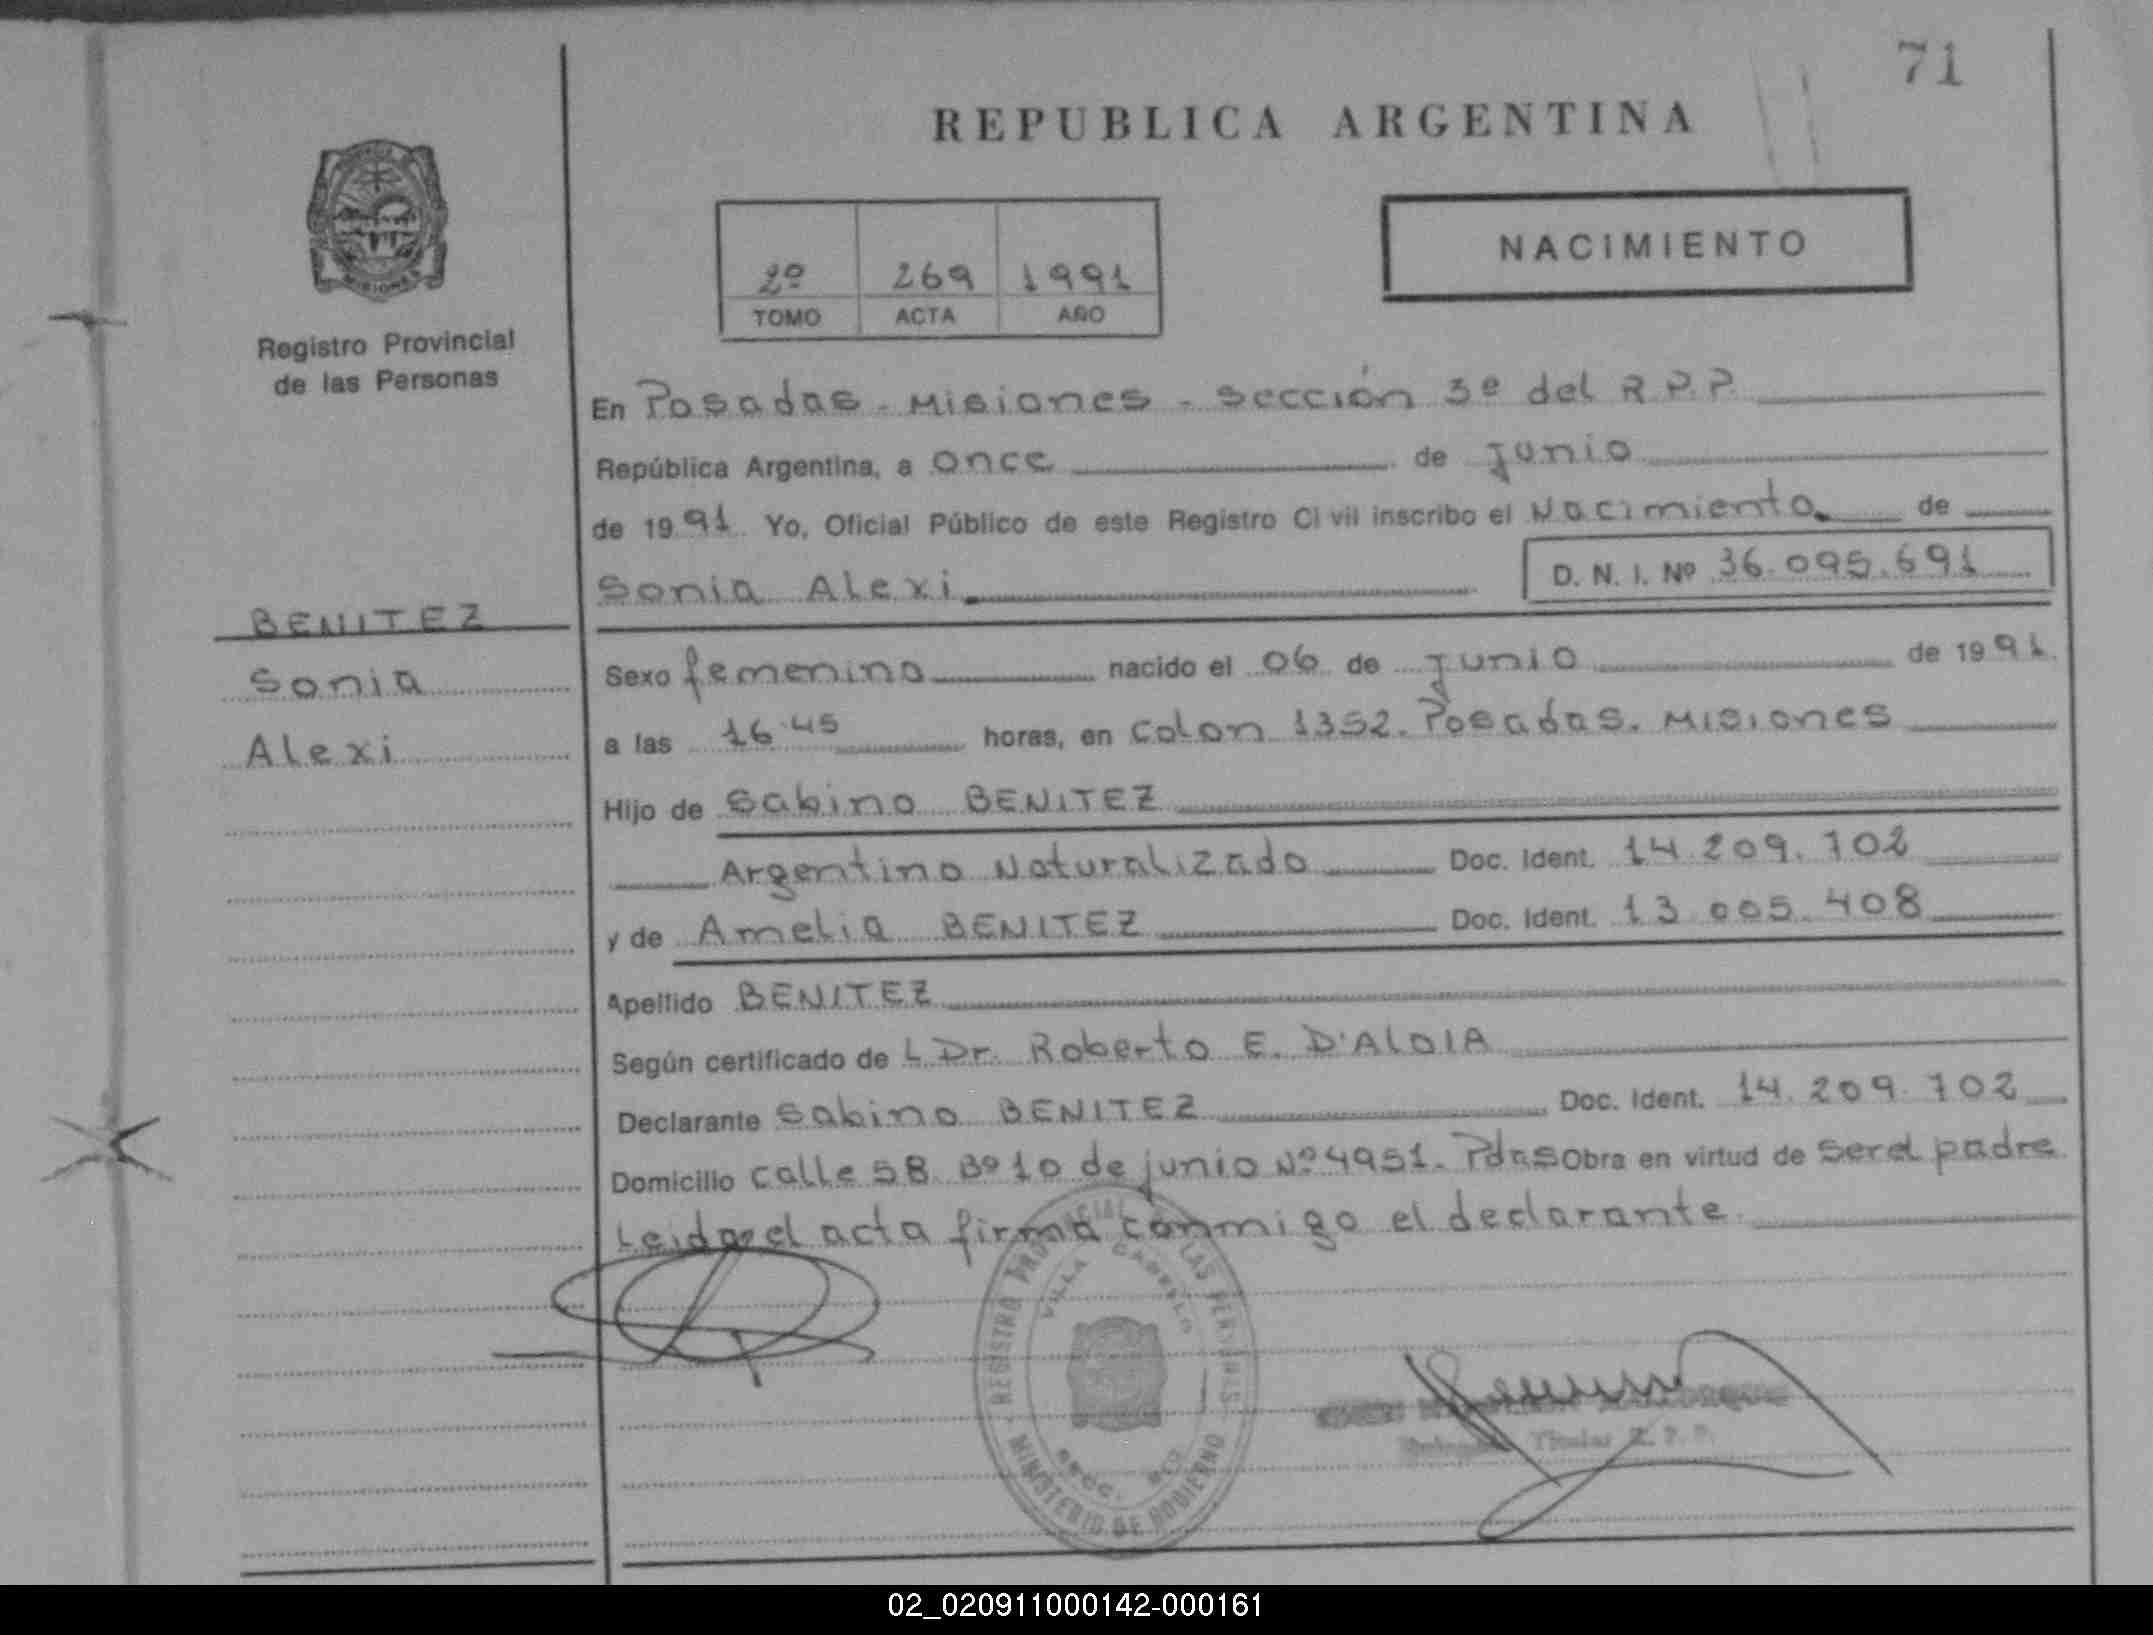 71
REPUBLICA ARGENTINA
2º 269 1991
TOMO ACTA AÑO
NACIMIENTO
Registro Provincial
de las Personas
En Posadas - Misiones - sección 3º del R.P.P.
República Argentina, a once de junio
de 1991 Yo, Oficial Público de este Registro Civil inscribo el Nacimiento de
Sonia Alexi D. N. I. Nº 36.095.691
BENITEZ
Sonia
Alexi
Sexo femenino nacido el 06 de junio de 1991
a las 16.45 horas, en Colon 1352. Posadas. Misiones
Hijo de Sabino BENITEZ
Argentino Naturalizado Doc. Ident. 14.209.702
y de Amelia BENITEZ Doc. Ident. 13.005.408
Apellido BENITEZ
Según certificado de L Dr. Roberto E. D'ALOIA
Declarante Sabino BENITEZ Doc. Ident. 14.209.702
Domicilio calle 58 Bº 10 de junio Nº 4951. Pdas Obra en virtud de ser el padre
Leida el acta firma conmigo el declarante
REGISTRO PROVINCIAL LAS PERSONAS
VILLA CABELLO
SECC.
MINISTERIO DE GOBIERNO
Titular R.P.P.
02_020911000142-000161